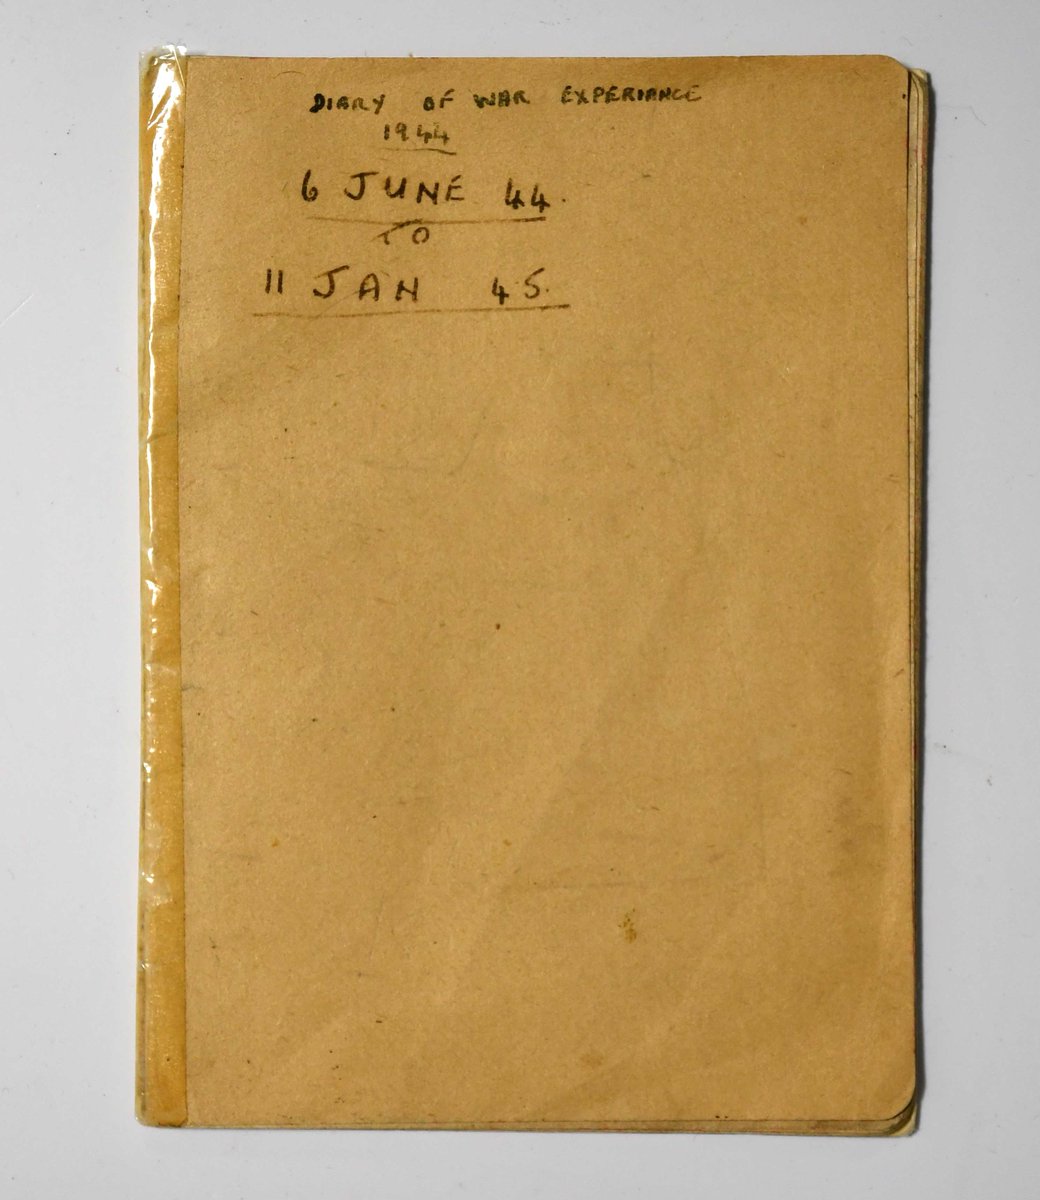 DIARY OF WAR EXPERIANCE
1944
6 JUNE 44.
TO
11 JAN 45.